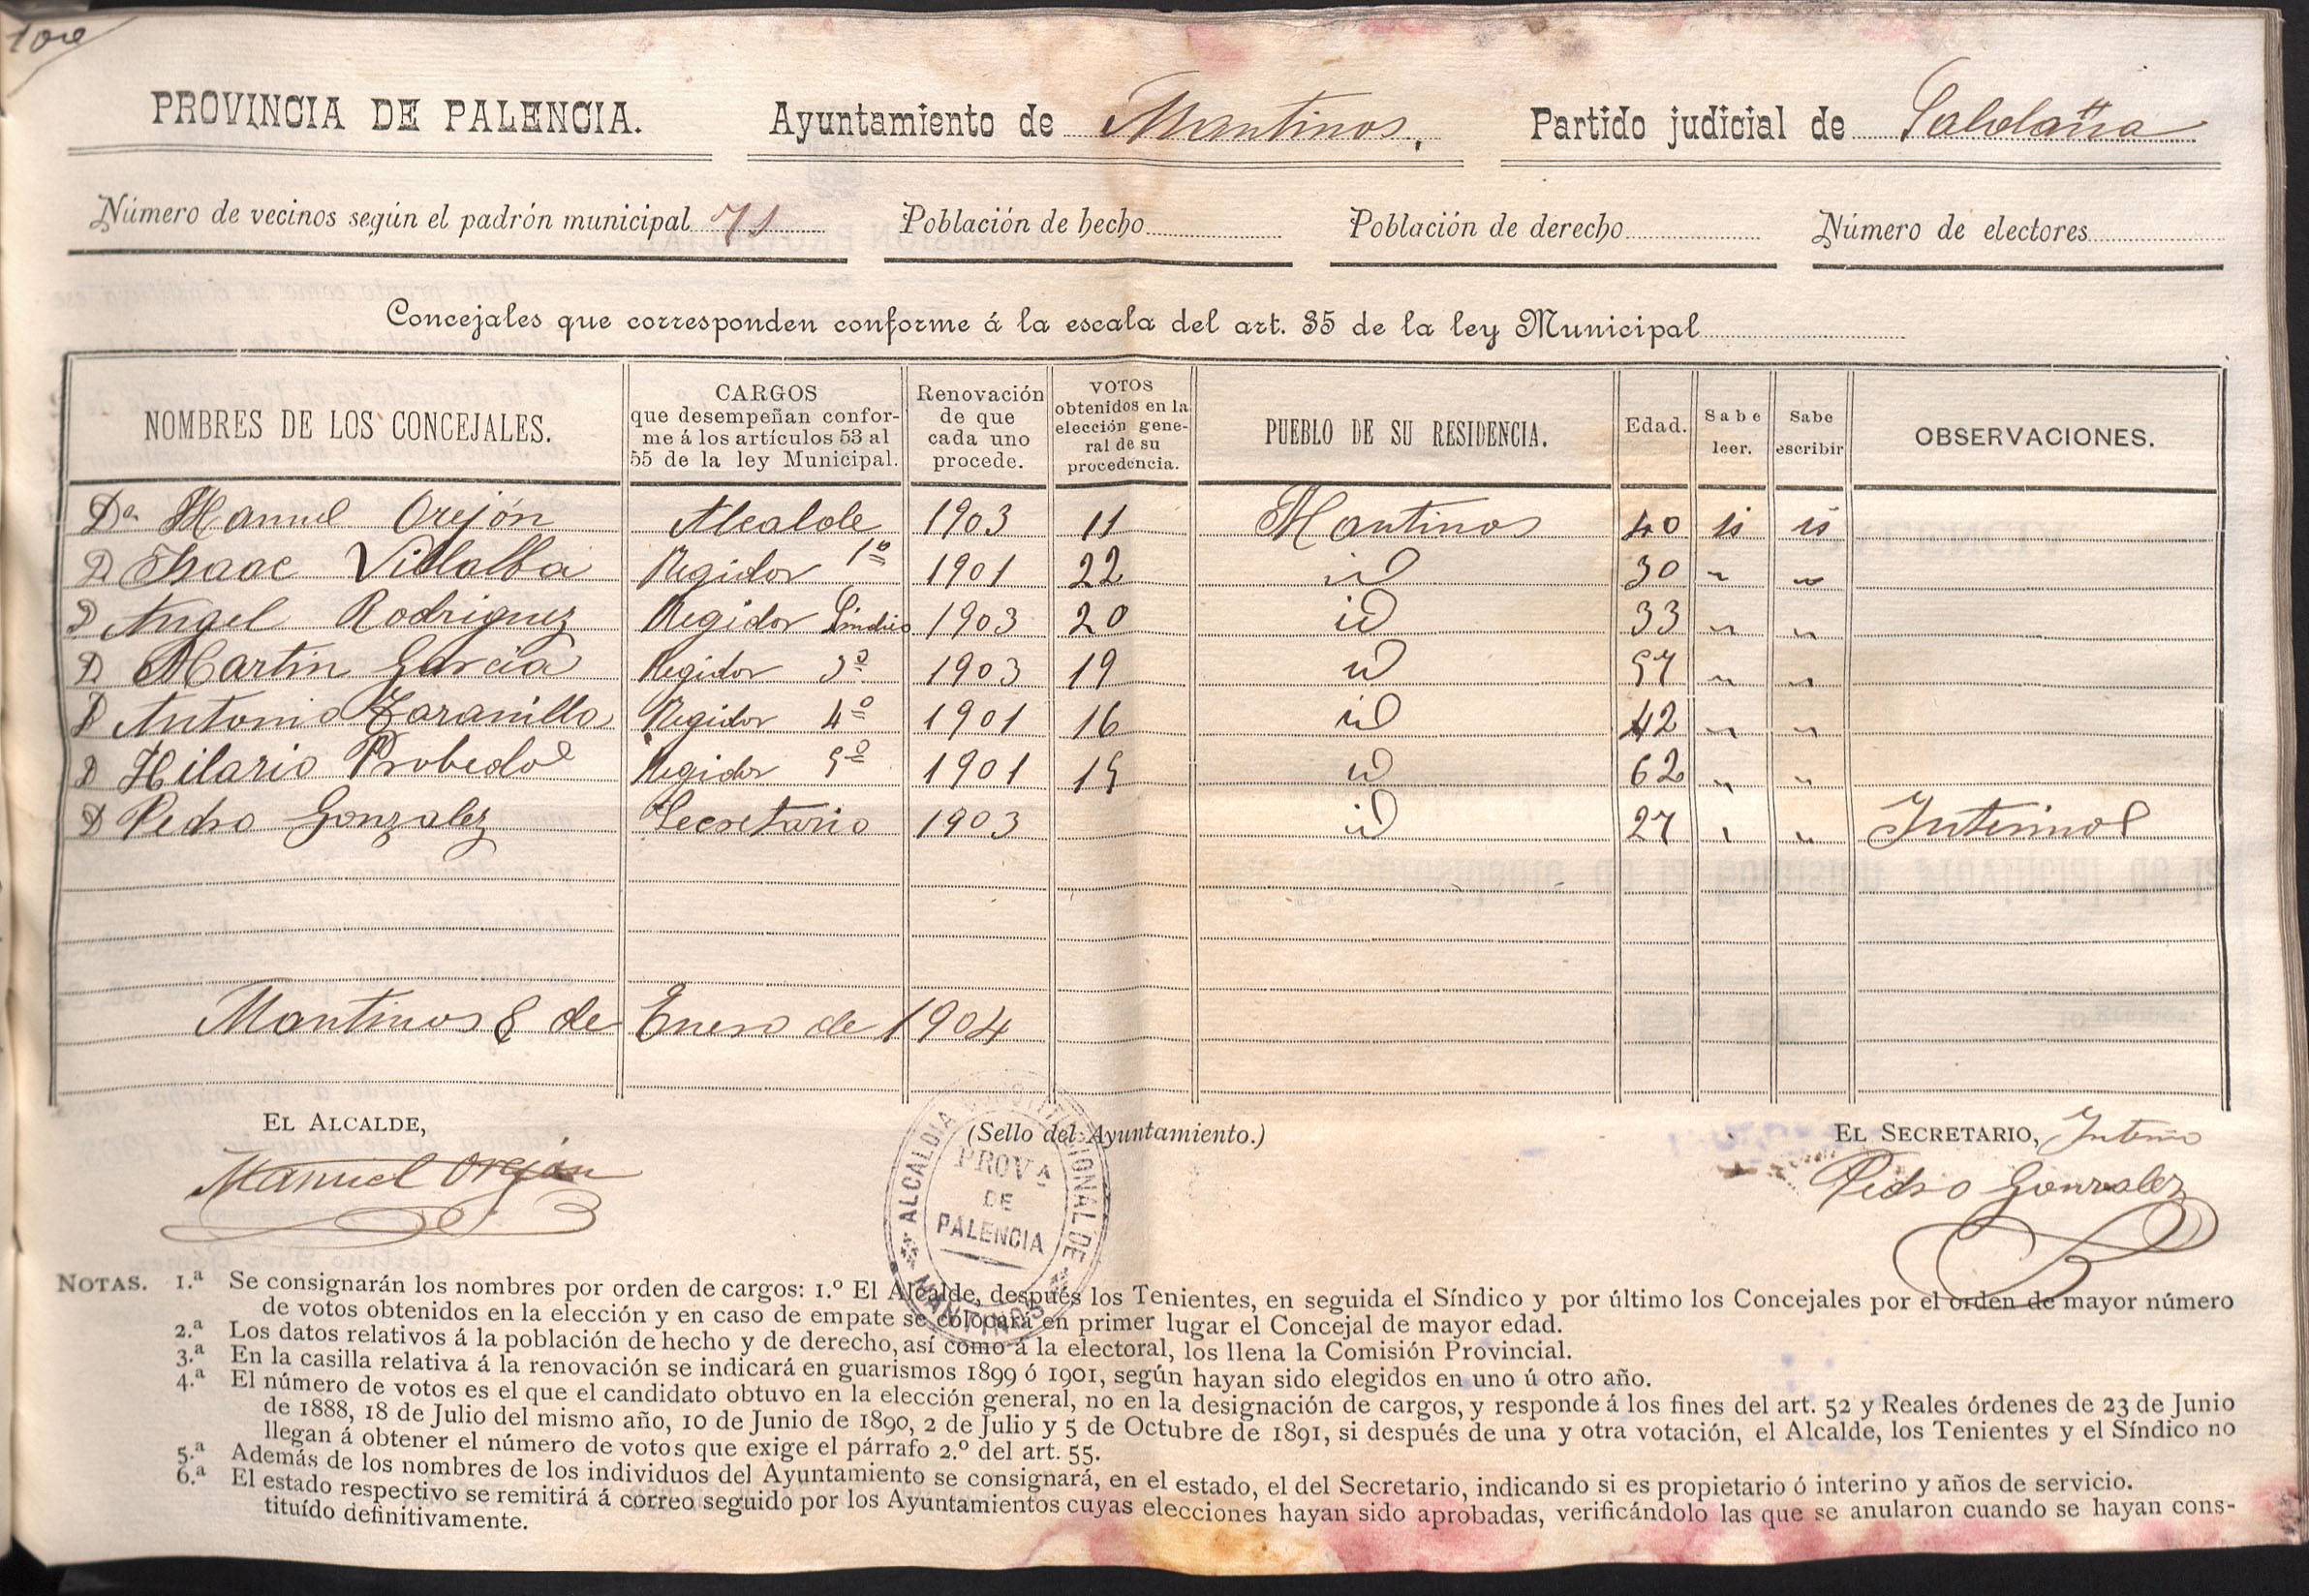 PROVINCIA DE PALENCIA. Ayuntamiento de Mantinos. Partido judicial de Saldaña
Número de vecinos según el padrón municipal 71 Población de hecho Población de derecho Número de electores
Concejales que corresponden conforme á la escala del art. 35 de la ley Municipal
NOMBRES DE LOS CONCEJALES. CARGOS que desempeñan confor- me á los artículos 53 al 55 de la ley Municipal. Renovación de que cada uno procede. VOTOS obtenidos en la elección gene- ral de su procedencia. PUEBLO DE SU RESIDENCIA. Edad. Sabe leer. Sabe escribir OBSERVACIONES.
Dn Manuel Orejón Alcalde 1903 11 Mantinos 40 si si
D Isaac Villalba Regidor 1º 1901 22 id 30 " "
D Angel Rodriguez Regidor Sindico 1903 20 id 33 " "
D Martin Garcia Regidor 3º 1903 19 id 57 " "
D Antonio Taranilla Regidor 4º 1901 16 id 42 " "
D Hilario Regidor 5º 1901 15 id 62 " "
D Pedro Gonzalez Secretario 1903 id 27 " " Interino
Mantinos 8 de Enero de 1904
EL ALCALDE, (Sello del Ayuntamiento.) EL SECRETARIO, Interino
Manuel Orejón Pedro Gonzalez
ALCALDIA CONSTITUCIONAL DE MANTINOS
PROVA
DE
PALENCIA
NOTAS. 1.ª Se consignarán los nombres por orden de cargos: 1.º El Alcalde, después los Tenientes, en seguida el Síndico y por último los Concejales por el orden de mayor número
de votos obtenidos en la elección y en caso de empate se colocará en primer lugar el Concejal de mayor edad.
2.ª Los datos relativos á la población de hecho y de derecho, así como á la electoral, los llena la Comisión Provincial.
3.ª En la casilla relativa á la renovación se indicará en guarismos 1899 ó 1901, según hayan sido elegidos en uno ú otro año.
4.ª El número de votos es el que el candidato obtuvo en la elección general, no en la designación de cargos, y responde á los fines del art. 52 y Reales órdenes de 23 de Junio
de 1888, 18 de Julio del mismo año, 10 de Junio de 1890, 2 de Julio y 5 de Octubre de 1891, si después de una y otra votación, el Alcalde, los Tenientes y el Síndico no
llegan á obtener el número de votos que exige el párrafo 2.º del art. 55.
5.ª Además de los nombres de los individuos del Ayuntamiento se consignará, en el estado, el del Secretario, indicando si es propietario ó interino y años de servicio.
6.ª El estado respectivo se remitirá á correo seguido por los Ayuntamientos cuyas elecciones hayan sido aprobadas, verificándolo las que se anularon cuando se hayan cons-
tituído definitivamente.